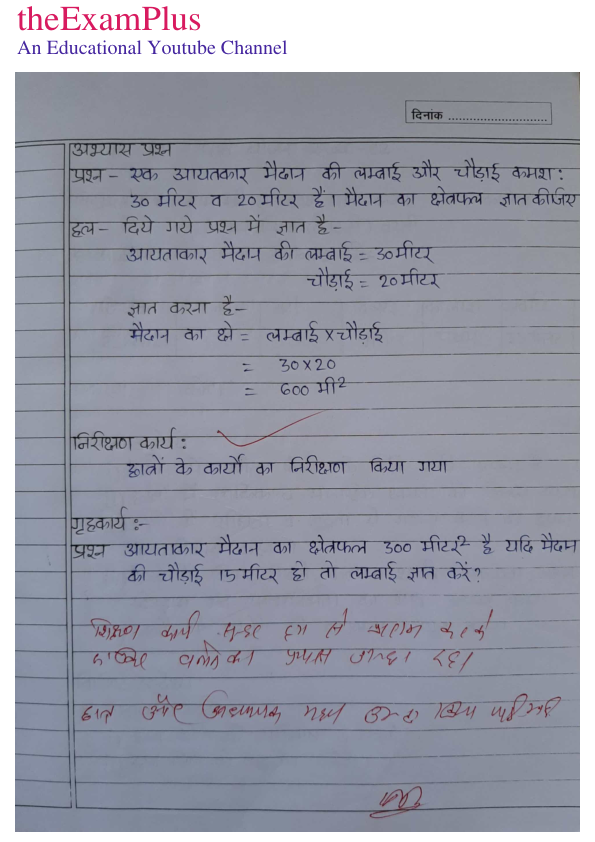 theExamPlus
An Educational Youtube Channel
दिनांक ............................
अभ्यास प्रश्न
प्रश्न - एक आयतकार मैदान की लम्बाई और चौड़ाई कमश:
30 मीटर व 20 मीटर हैं। मैदान का क्षेत्रफल ज्ञात कीजिए
हल - दिये गये प्रश्न में ज्ञात है -
आयताकार मैदान की लम्बाई = 30 मीटर
चौड़ाई = 20 मीटर
ज्ञात करना है -
मैदान का क्षे = लम्बाई × चौड़ाई
= 30 × 20
= 600 मी²
निरीक्षण कार्य :
छात्रों के कार्यों का निरीक्षण किया गया
गृहकार्य :-
प्रश्न आयताकार मैदान का क्षेत्रफल 300 मीटर² है यदि मैदान
की चौड़ाई 15 मीटर हो तो लम्बाई ज्ञात करें?
शिक्षण कार्य से करके
का प्रयास रहा।
छात्र और मध्य